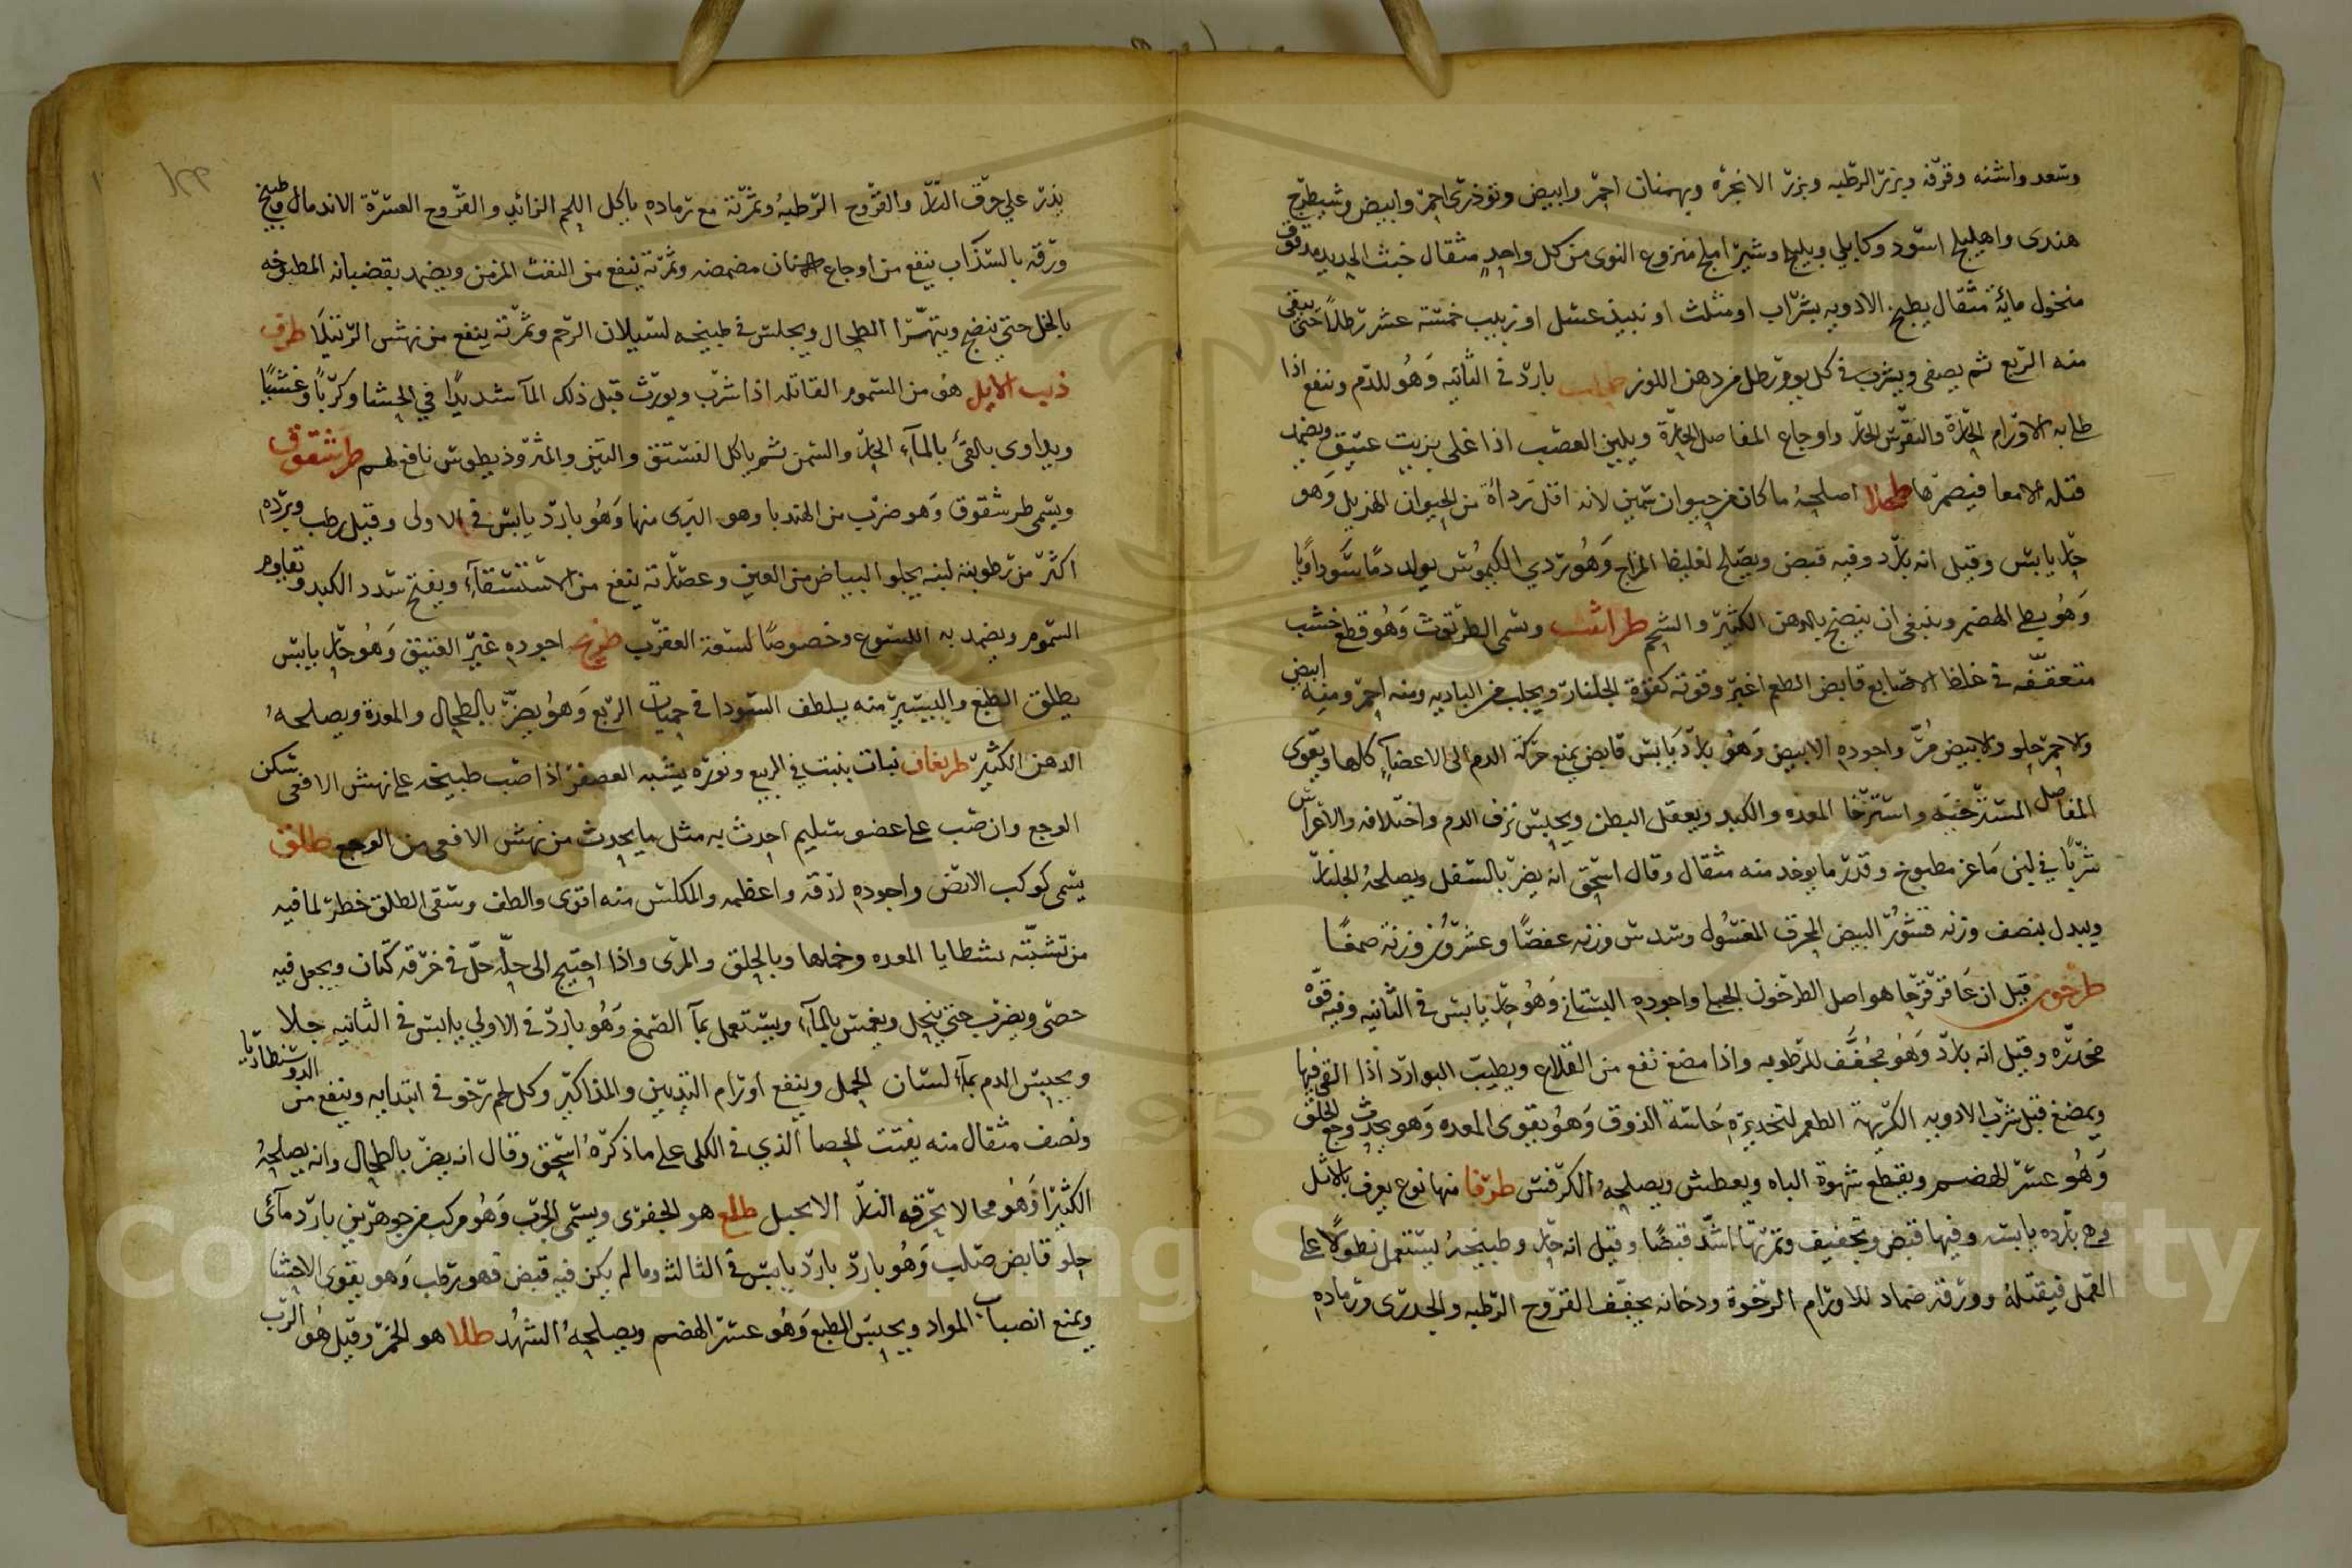 وسعد واشنه وقرفه وبزر الرطبه وبزر الانجره وبهمنان احمر وابيض وتوذري احمر وابيض وشيطرج
هندى واهليلج اسود وكابلي وبليلج وشير املج منزوع النوى من كل واحد مثقال خبث الحديد مدقوق
منخول مائة مثقال يطبخ الادويه بشراب او مثلث او نبيذ عسل او زبيب خمسة عشر رطلا حتى يبقى
منه الربع ثم يصفى ويشرب في كل يوم رطل من دهن اللوز بارد في الثانيه وهو للدم وينفع اذا
طلى به الاورام الحارة والنقرس الحار واوجاع المفاصل الحارة ويلين العصب اذا غلى بزيت عتيق ويضمد
قتله الامعا فيضمرها طحال اصلحه ما كان من حيوان سمين لانه اقل رداءة من الحيوان الهزيل وهو
حار يابس وقيل انه بارد وفيه قبض ويصلح لغليظ المزاج وهو ردي الكيموس يولد دما سوداويا
وهو بطي الهضم وينبغي ان ينضج بالدهن الكثير والشحم طراثيث ويسمى الطرثوث وهو قطع خشب
متعقفه في غلظ الاصابع قابض الطعم اغبر وقوته كقوة الجلنار ويجلب من الباديه ومنه احمر ومنه ابيض
والاحمر حلو والابيض مر واجوده الابيض وهو بارد يابس قابض يمنع حركة الدم الى الاعضاء كلها ويقوى
المفاصل المسترخيه واسترخا المعده والكبد ويعقل البطن ويحبس نزف الدم واختلافه والاغراس
شربا في لبن ماعز مطبوخ وقدر ما يوخد منه مثقال وقال اسحق انه يضر بالسفل ويصلحه الجلنار
ويبدل بنصف وزنه قشور البيض المحرق المغسول وسدس وزنه عفصا وعشر وزنه صمغا
طرخون قيل ان عاقرقرحا هو اصل الطرخون الجبلي واجوده البستاني وهو حار يابس في الثانيه وفيه قوة
مخدره وقيل انه بارد وهو مجفف للرطوبه واذا مضغ نفع من القلاع ويطيب البوارد اذا القى فيها
ويمضغ قبل شرب الادويه الكريهة الطعم لتخديره حاسة الذوق وهو يقوى المعده وهو يحدث وجع الحلق
وهو عسر الهضم ويقطع شهوة الباه ويعطش ويصلحه الكرفس طرفا منها نوع يعرف بالاثل
وهى بارده يابسه وفيها قبض وتجفيف وثمرتها اشد قبضا وقيل انه حار وطبيخه يستعمل نطولا على
القمل فيقتله وورقه ضماد للاورام الرخوة ودخانه يجفف القروح الرطبه والجدرى ورماده
يذر على حرق النار والقروح الرطبه وثمرته مع رماده ياكل اللحم الزائد والقروح العسرة الاندمال وطبيخ
ورقه بالسذاب ينفع من اوجاع الاسنان مضمضه وثمرته تنفع من النفث المزمن ويضمد بقضبانه المطبوخه
بالخل حتى ينضج ويتهرا الطحال ويجلس في طبيخه لسيلان الرحم وثمرته ينفع من نهش الرتيلا طرف
ذنب الايل هو من السموم القاتله اذا شرب ويورث قبل ذلك الما شديدا في الحشا وكربا وغشيا
ويداوى بالقئ بالماء الحار والسمن ثم ياكل الفستق والتين والمثروذيطوس نافع لهم طرشقوق
ويسمى طرشقوق وهو ضرب من الهندبا وهو البرى منها وهو بارد يابس في الاولى وقيل رطب وبرده
اكثر من رطوبته لبنه يجلو البياض من العين وعصارته ينفع من الاستسقاء ويفتح سدد الكبد ويقاوم
السموم ويضمد به اللسوع وخصوصا لسعة العقرب اجوده غير العتيق وهو حار يابس
يطلق الطبع واليسير منه يلطف السودا في حميات الربع وهو يضر بالطحال والمعدة ويصلحه
الدهن الكثير طريفان نبات ينبت في الربيع ونوره يشبه العصفر اذا صب طبيخه على نهش الافعى سكن
الوجع وان صب على عضو سليم احدث به مثل ما يحدث من نهش الافعى من الوجع طلق
يسمى كوكب الارض واجوده لزقه واعظمه والمكلس منه اقوى والطف وسقى الطلق خطر لما فيه
من تشبثه بشظايا المعده وخملها وبالحلق والمرى واذا احتيج الى حله حل في خرقة كتان ويجعل فيه
حصى ويضرب حتى ينحل ويغمس بالماء ويستعمل بما الصمغ وهو بارد في الاولى يابس في الثانيه جلا
ويحبس الدم بماء لسان الحمل وينفع اورام الثديين والمذاكير وكل لحم رخو في ابتدايه وينفع من الدوسنطاريا
ونصف مثقال منه يفتت الحصا الذي في الكلى على ما ذكره اسحق وقال انه يضر بالطحال وانه يصلحه
الكثيرا وهو مما لا يحرقه النار الا بحيل طلع هو الجفرى ويسمى الجرب وهو مركب من جوهرين بارد مائى
حلو قابض صلب وهو بارد بارد يابس في الثالثه وما لم يكن فيه قبض فهو رطب وهو يقوى الاحشا
ويمنع انصباب المواد ويحبس الطبع وهو عسر الهضم ويصلحه الشهد طلا هو الخمر وقيل هو الرب